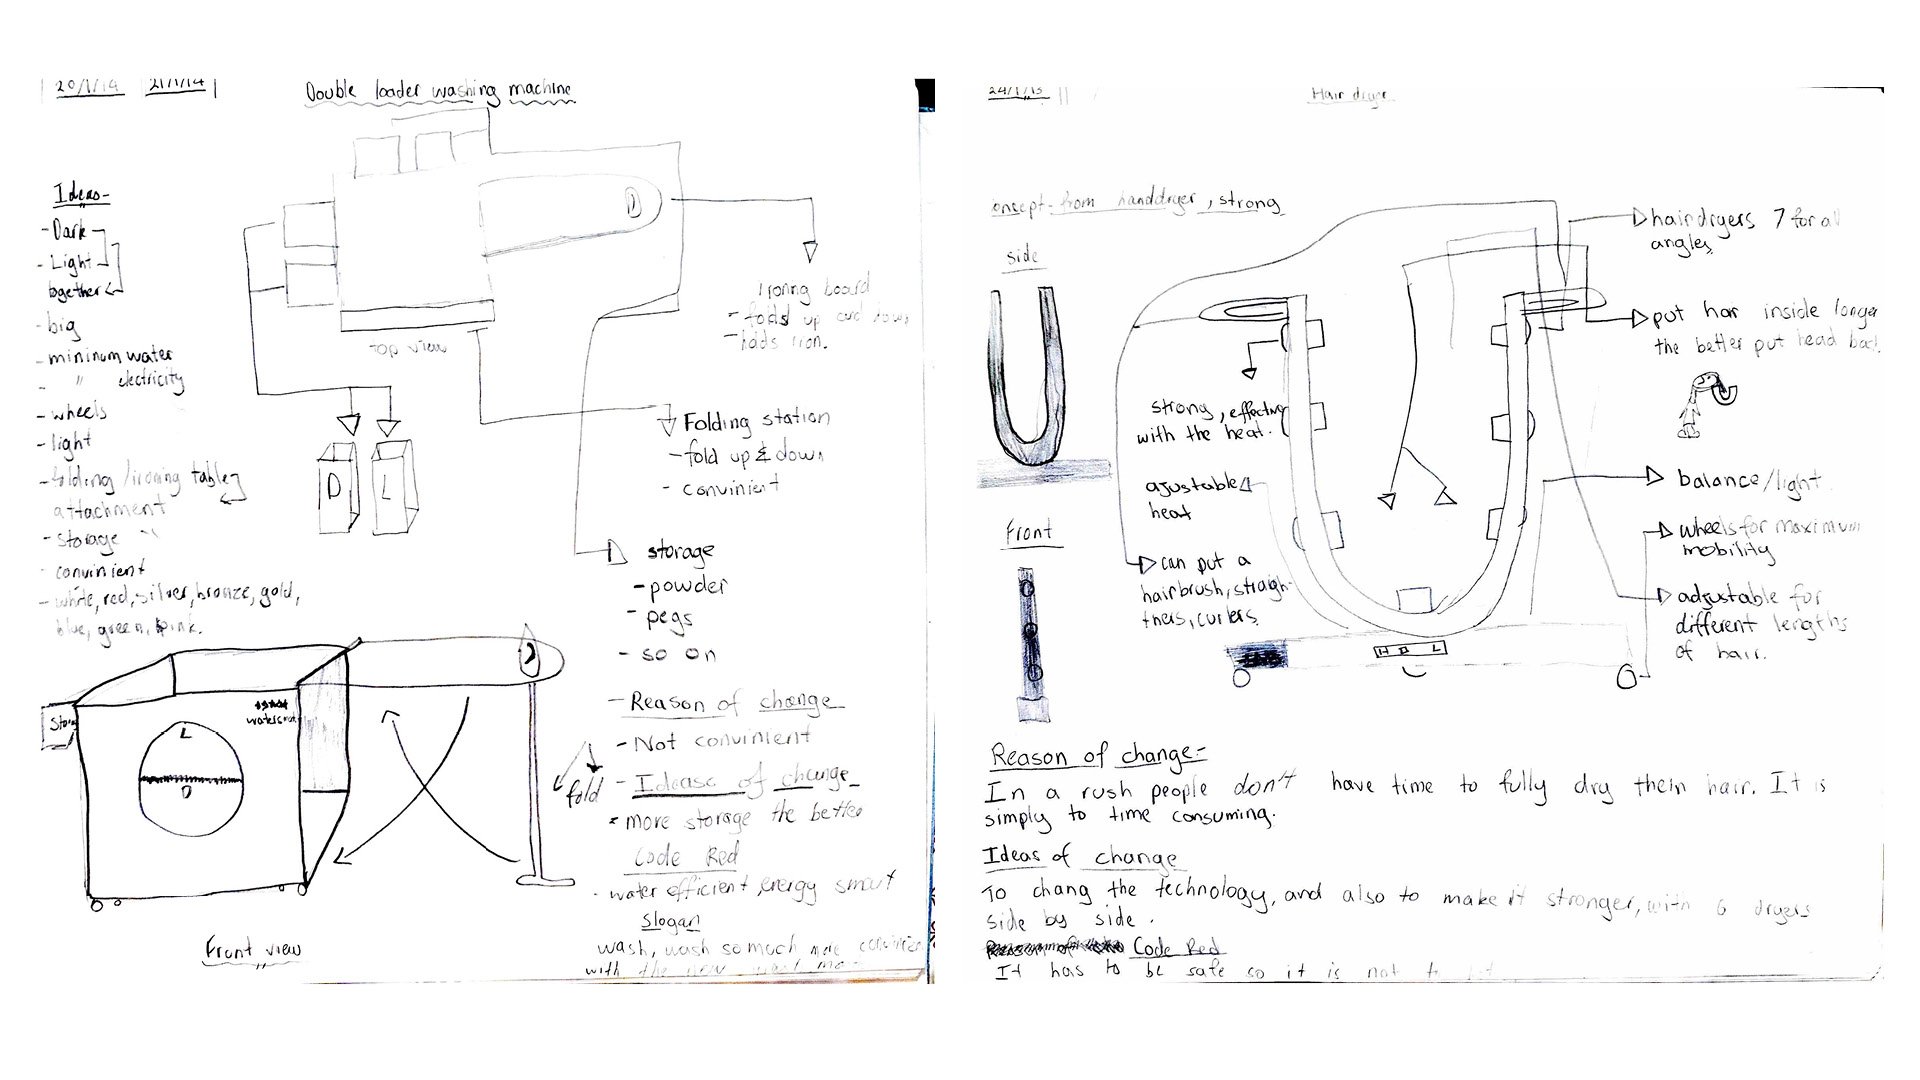 20/1/14 21/1/14
Double loader washing machine
Ideas-
- Dark
- Light
together
- big
- mininum water
- " electricity
- wheels
- light
- folding /ironing table
attachment
- storage
- convinient
- white, red, silver, bronze, gold,
blue, green, pink.
top view
Ironing board
- folds up and down
- holds iron.
D L
Folding station
- fold up & down
- convinient
storage
- powder
- pegs
- so on
- Reason of change
- Not convinient
- Idease of change
* more storage the better
Code Red
- water efficient, energy smart
slogan
wash, wash so much more
with the new
fold
L
D
Front view
24/1/13
Hair dryer
oncept- from handdryer, strong
side
Front
hairdryers 7 for al
angles
put har inside longer
the better put head bac
strong, effective
with the heat.
ajustable
heat
can put a
hairbrush, straigh-
tners, curlers
balance/light
wheels for maximum
mobility
adjustable for
different lengths
of hair.
Reason of change:-
In a rush people don't have time to fully dry their hair. It is
simply to time consuming.
Ideas of change
To chang the technology, and also to make it stronger, with 6 dryers
side by side.
Code Red
It has to be safe so it is not